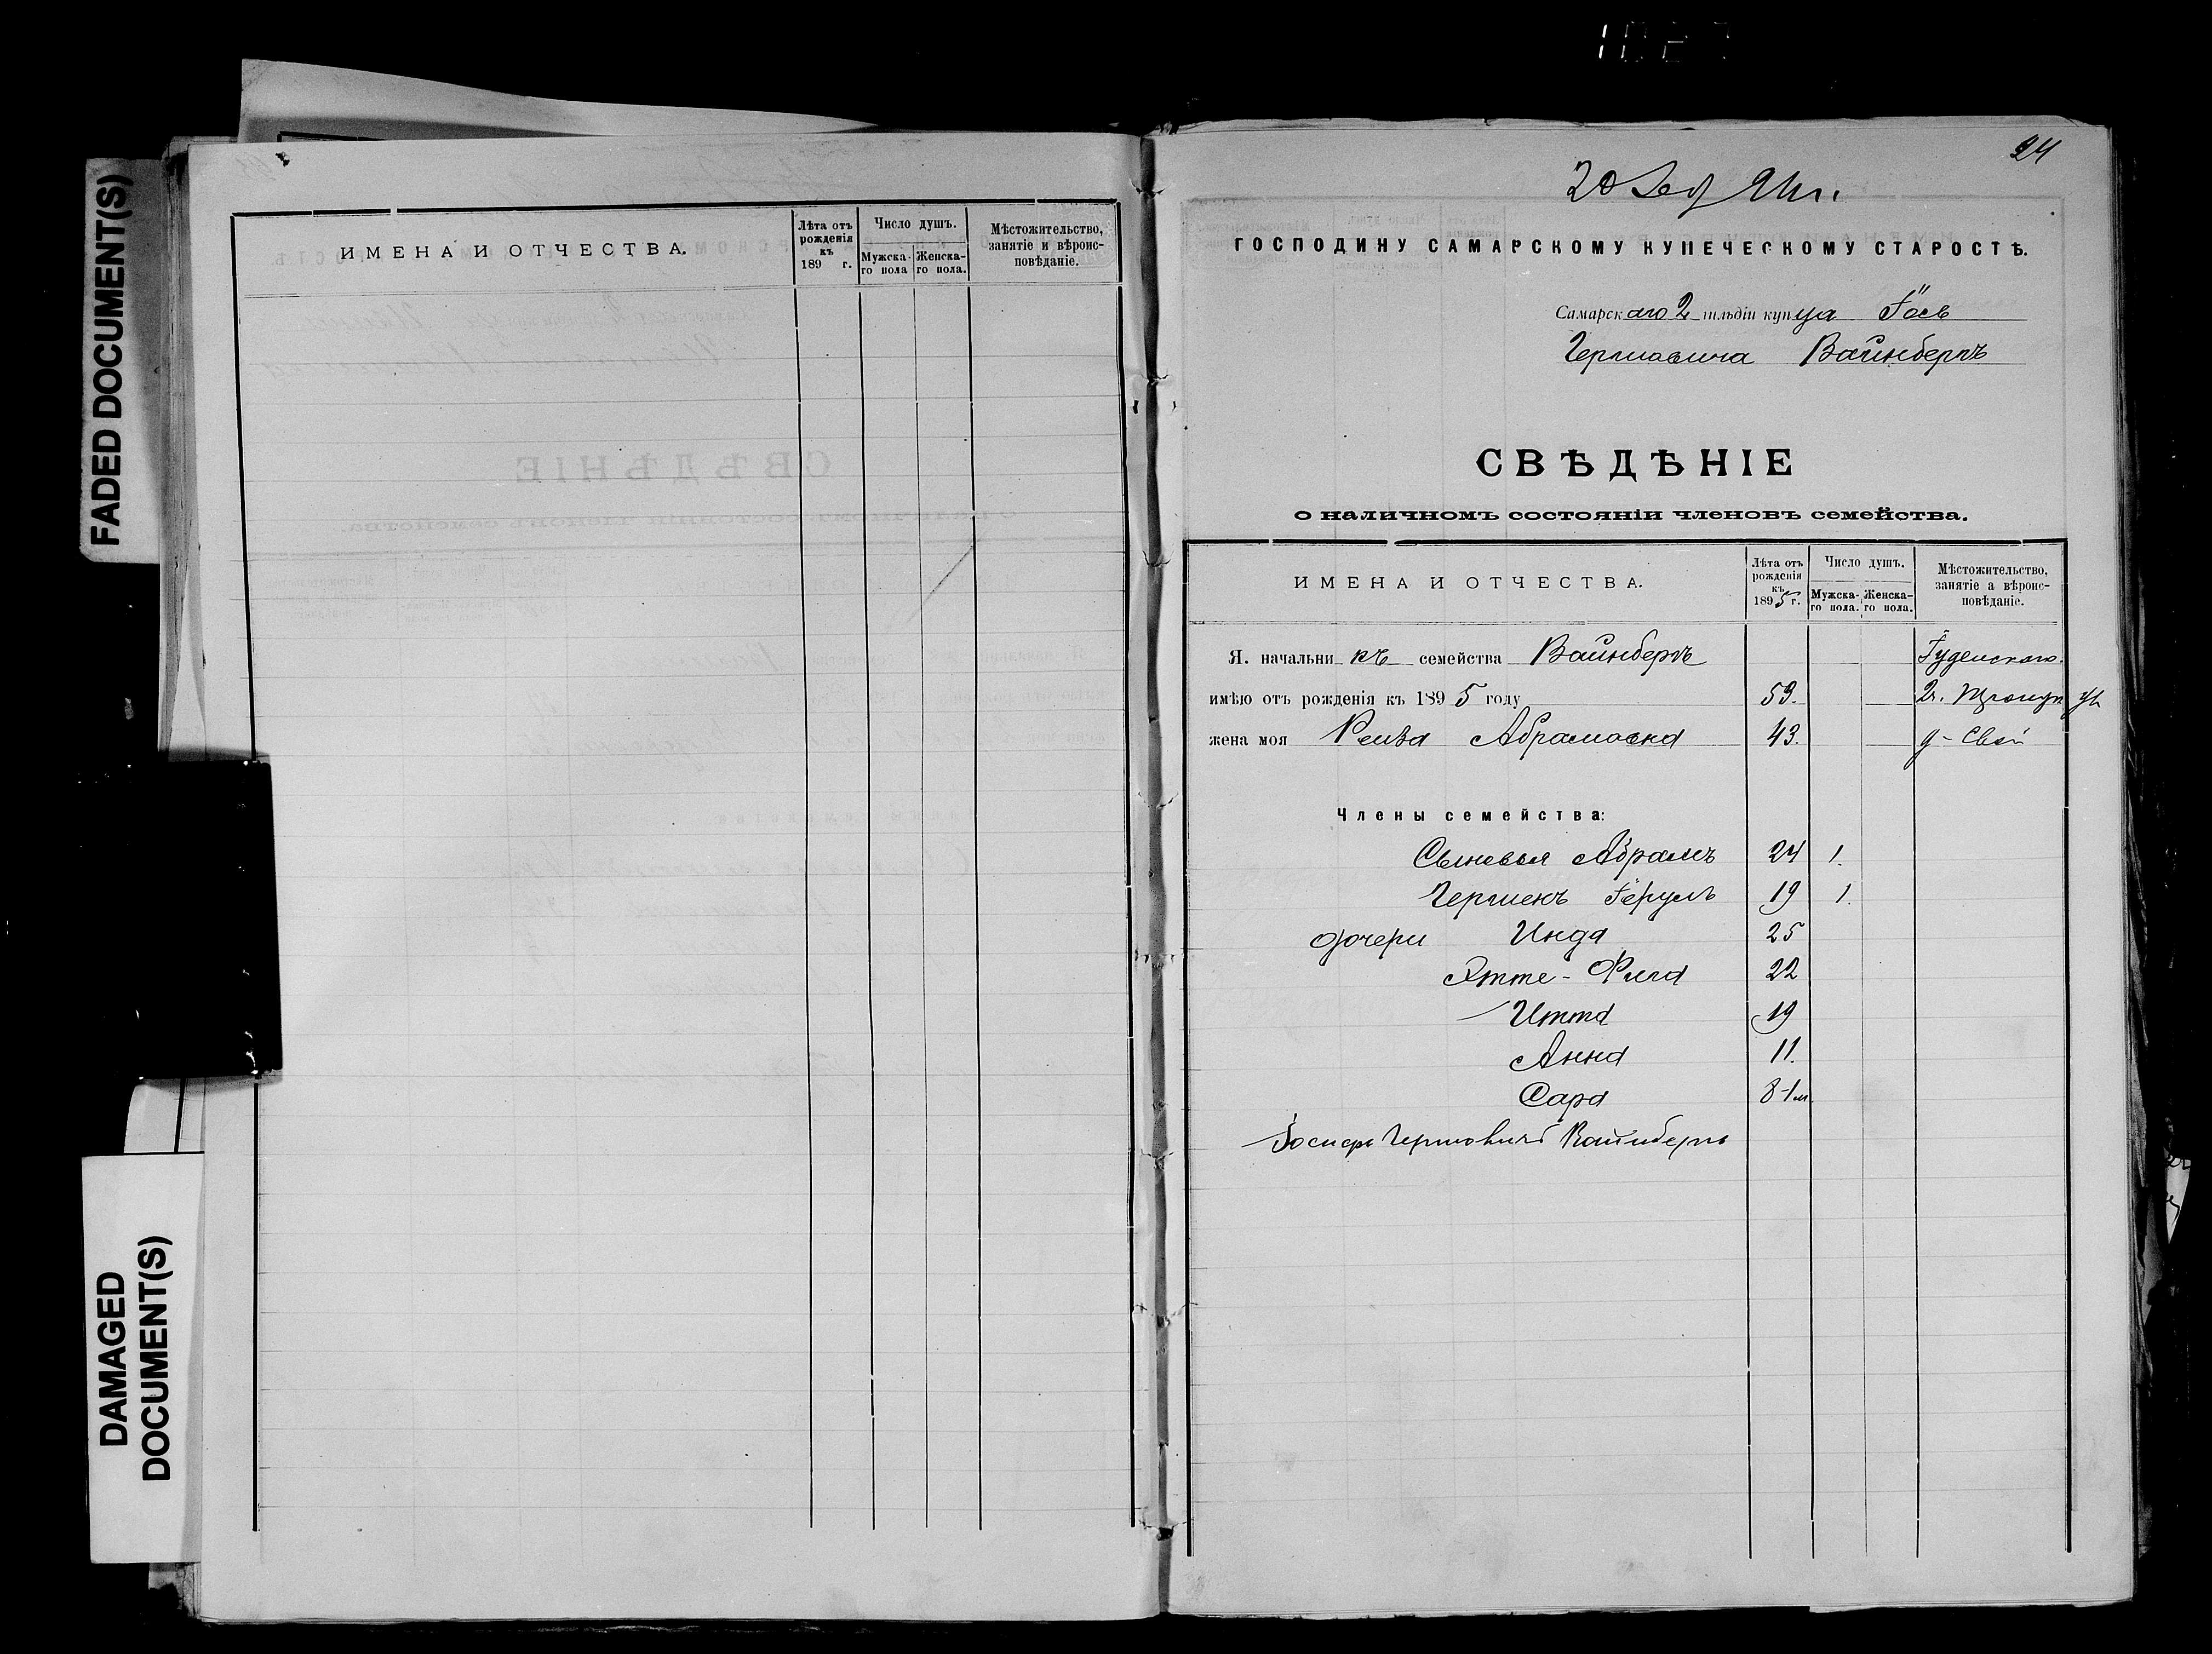 1027
FADED DOCUMENT(S)
DAMAGED
DOCUMENT(S)
ИМЕНА И ОТЧЕСТВА.
Лѣта отъ рожденія къ 189 г.
Число душъ.
Мужска-го пола
Женска-го пола.
Мѣстожительство, занятіе и вѣроис-повѣданіе.
24
20
ГОСПОДИНУ САМАРСКОМУ КУПЕЧЕСКОМУ СТАРОСТѢ.
Самарскаго 2 гильдіи купца Іось
Гермовича Вайнбергъ
СВѢДѢНІЕ
о наличномъ состояніи членовъ семейства.
ИМЕНА И ОТЧЕСТВА.
Лѣта отъ рожденія къ 1895 г.
Число душъ.
Мужска-го пола.
Женска-го пола.
Мѣстожительство, занятіе а вѣроис-повѣданіе.
Я. начальникъ семейства Вайнбергъ Іудейскаго.
имѣю отъ рожденія къ 1895 году 59. 2г.
жена моя Рейза Абрамовна 43. д-
Члены семейства:
Сыновья Абрамъ 24 1.
Германъ 19 1.
дочери Инда 25
Этте- 22
Итта 19
Анна 11.
Сара 8-1м
Іосифъ Гермовичъ Вайнбергъ